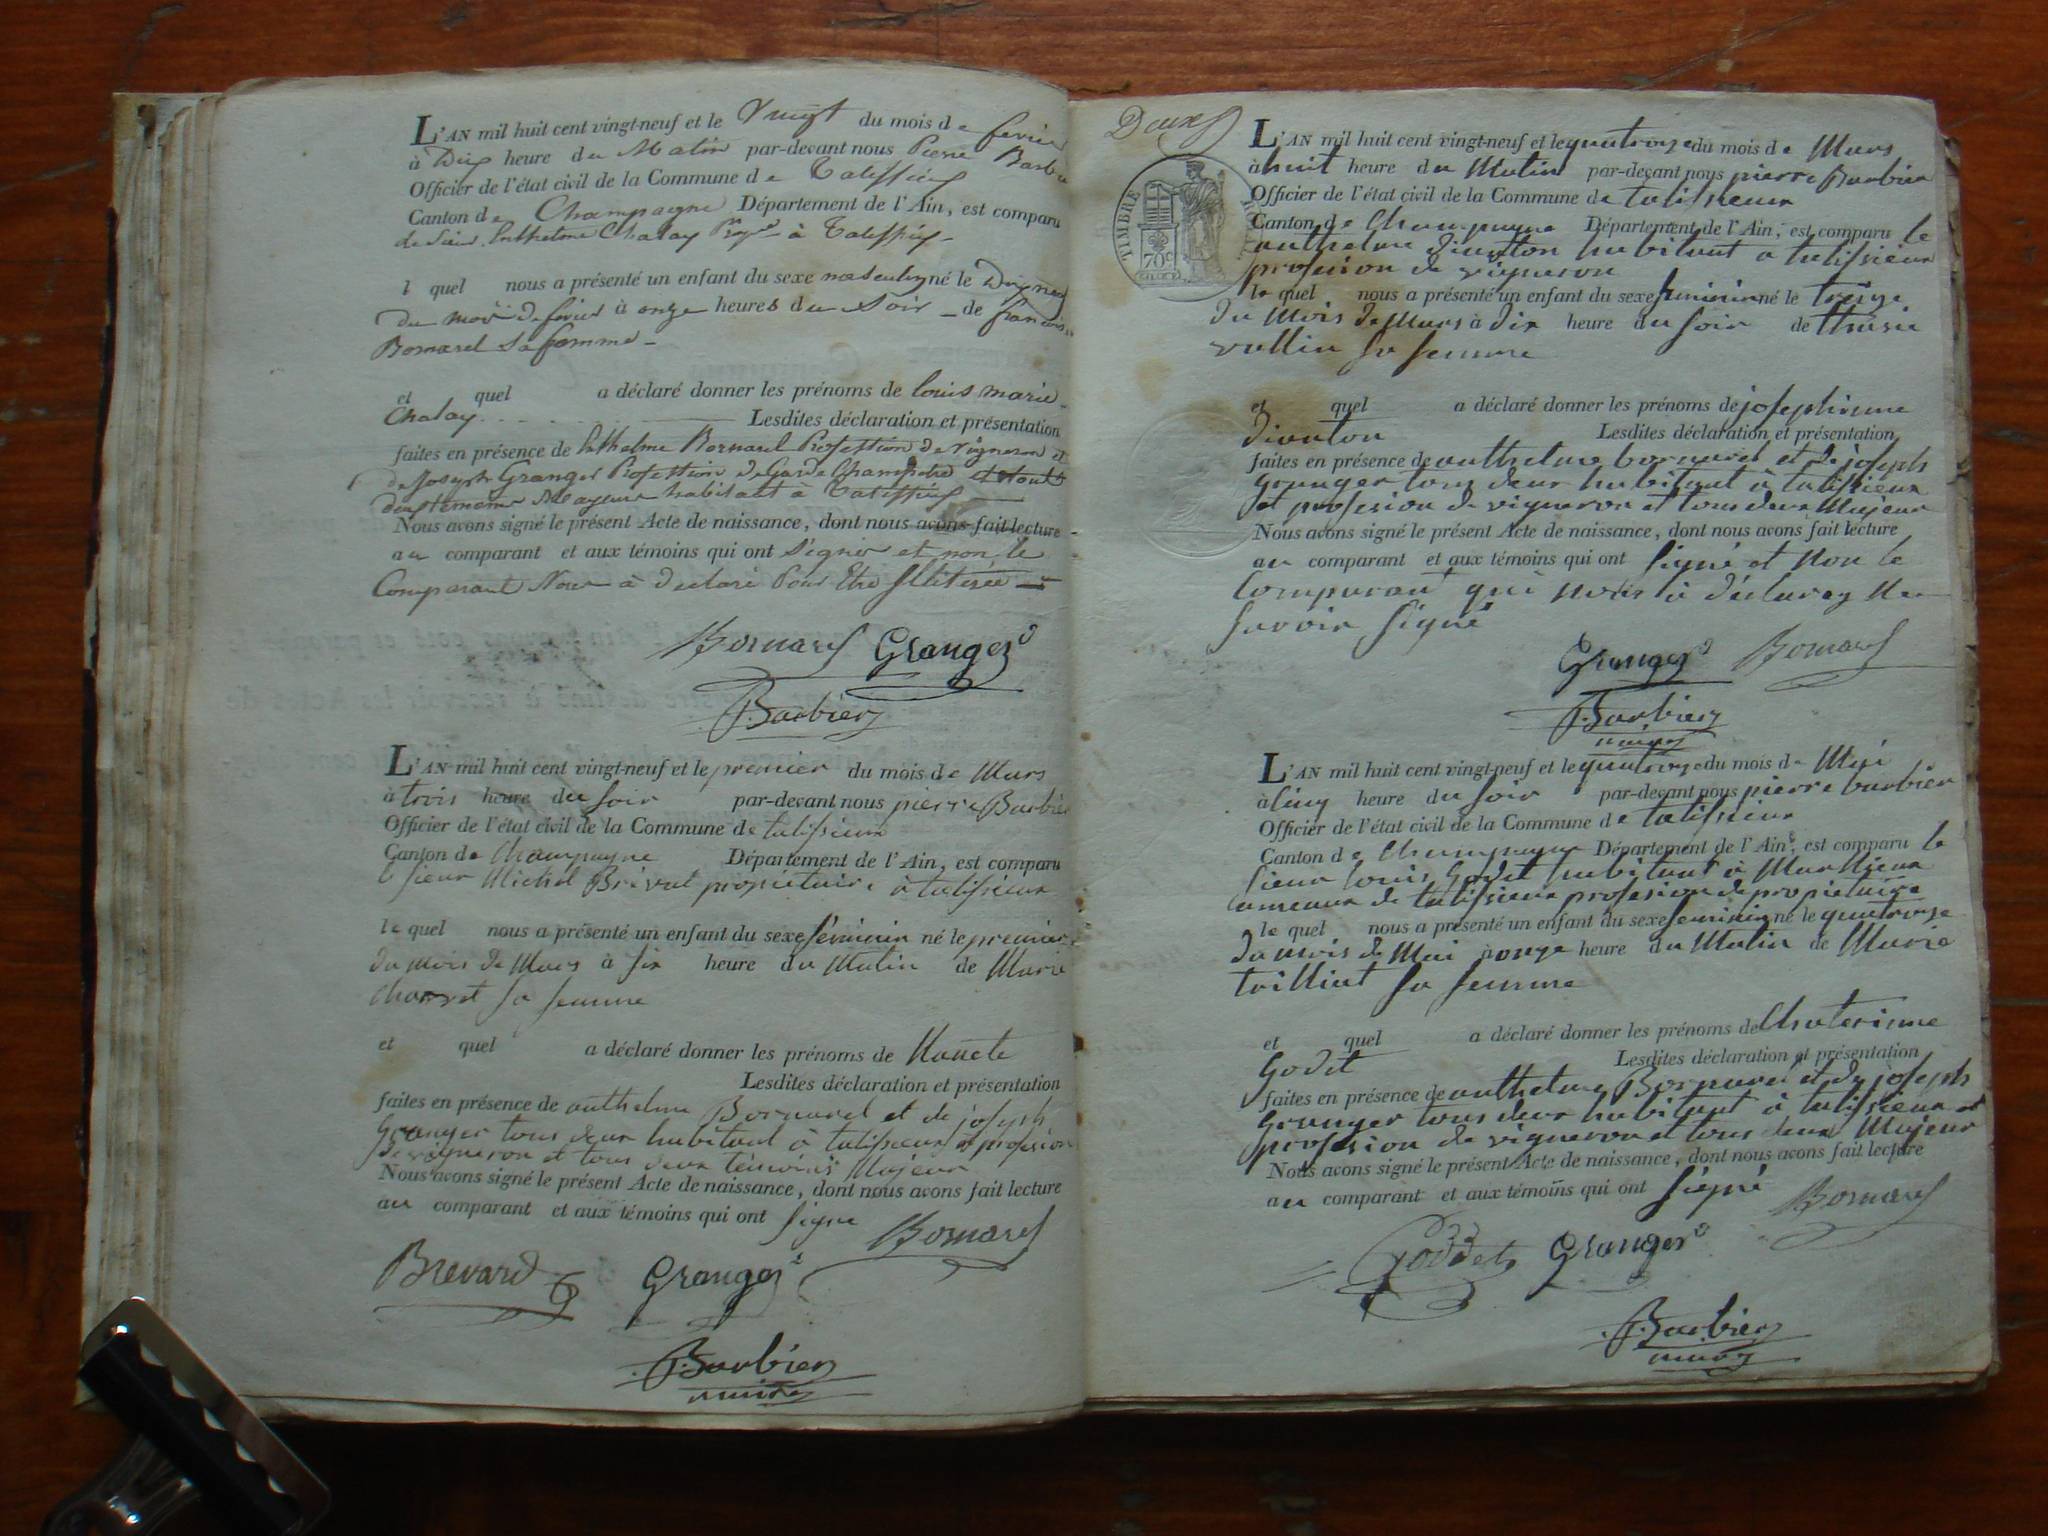 L'AN mil huit cent vingt-neuf et le Vingt du mois de fevrier
à Dix heure du Matin par-devant nous Pierre Barbier
Officier de l'état civil de la Commune de Talissieu
Canton de Champagne Département de l'Ain, est comparu
Chalay à Talissieu
l quel nous a présenté un enfant du sexe masculin né le Dix neuf
du mois de fevrier à onze heures du Soir de francoise
Bornarel Sa femme
et quel a déclaré donner les prénoms de louis marie
Chalay Lesdites déclaration et présentation
faites en présence de Anthelme Bornarel Profession de Vigneron et
de Joseph Granger Profession de Garde Champetre et tout
deux temoins Majeurs habitant à Talissieu
Nous avons signé le présent Acte de naissance, dont nous avons fait lecture
au comparant et aux témoins qui ont Signer et non le
Comparant Nous à declaré Pour Etre Illitirée
Bornarel Granger
P. Barbier
L'AN mil huit cent vingt-neuf et le premier du mois de Mars
à trois heure du Soir par-devant nous pierre Barbier
Officier de l'état civil de la Commune de talissieux
Canton de Champagne Département de l'Ain, est comparu
le sieur Michel Brevat propriétaire à talissieux
le quel nous a présenté un enfant du sexe féminin né le premier
du mois de Mars à Six heure du Matin de Marie
Charvet sa femme
et quel a déclaré donner les prénoms de
Lesdites déclaration et présentation
faites en présence de anthelme Bornarel et de joseph
Granger tous deux habitant à talissieux et profesion
de vigneron et tous deux témoins Majeur
Nous avons signé le présent Acte de naissance, dont nous avons fait lecture
au comparant et aux témoins qui ont signe Bornarel
Brevard Granger
P. Barbier
maire
Deux
TIMBRE
70c
L'AN mil huit cent vingt-neuf et le quatorze du mois de Mars
à huit heure du Matin par-devant nous pierre Barbier
Officier de l'état civil de la Commune de talissieux
Canton de Champagne Département de l'Ain, est comparu le
anthelme habitant a talissieux
profesion de vigneron
le quel nous a présenté un enfant du sexe feminin né le treize
du Mois de Mars à dix heure du soir de
vullin sa femme
et quel a déclaré donner les prénoms de josephinne
Lesdites déclaration et présentation
faites en présence de anthelme bornarel et de joseph
Granger tous deux habitant à talissieux
et profesion de vigneron et tous deux Majeur
Nous avons signé le présent Acte de naissance, dont nous avons fait lecture
au comparant et aux témoins qui ont signé et non le
Comparant qui nous à déclarez ne
savoir signé
Granger Bornarel
P. Barbier
maire
L'AN mil huit cent vingt-neuf et le quatorze du mois de Mai
à Cinq heure du Soir par-devant nous pierre barbier
Officier de l'état civil de la Commune de talissieux
Canton de Champagne Département de l'Ain, est comparu le
sieur louis Godet habitant à
ameaux de talissieux profesion de propietaire
le quel nous a présenté un enfant du sexe feminin né le quatorze
du mois de Mai à onze heure du Matin de Marie
sa femme
et quel a déclaré donner les prénoms de Chaterinne
Godet Lesdites déclaration et présentation
faites en présence de anthelme Bornarel et de joseph
Granger tous deux habitant à talissieux et
profesion de vigneron et tous deux Majeur
Nous avons signé le présent Acte de naissance, dont nous avons fait lecture
au comparant et aux témoins qui ont signé Bornarel
Goddet Granger
P. Barbier
maire